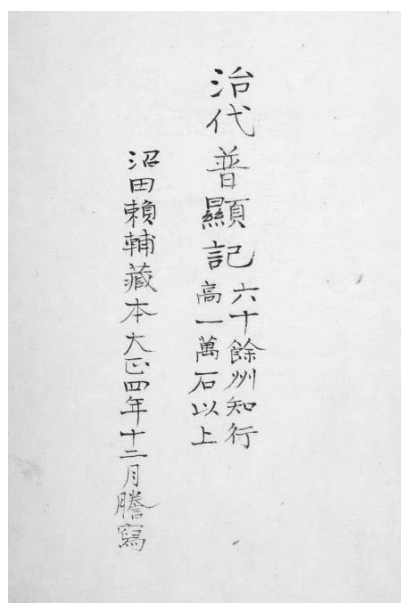 治代普顯記
六十餘州知行
高一萬石以上
沼田賴輔藏本大正四年十二月謄寫